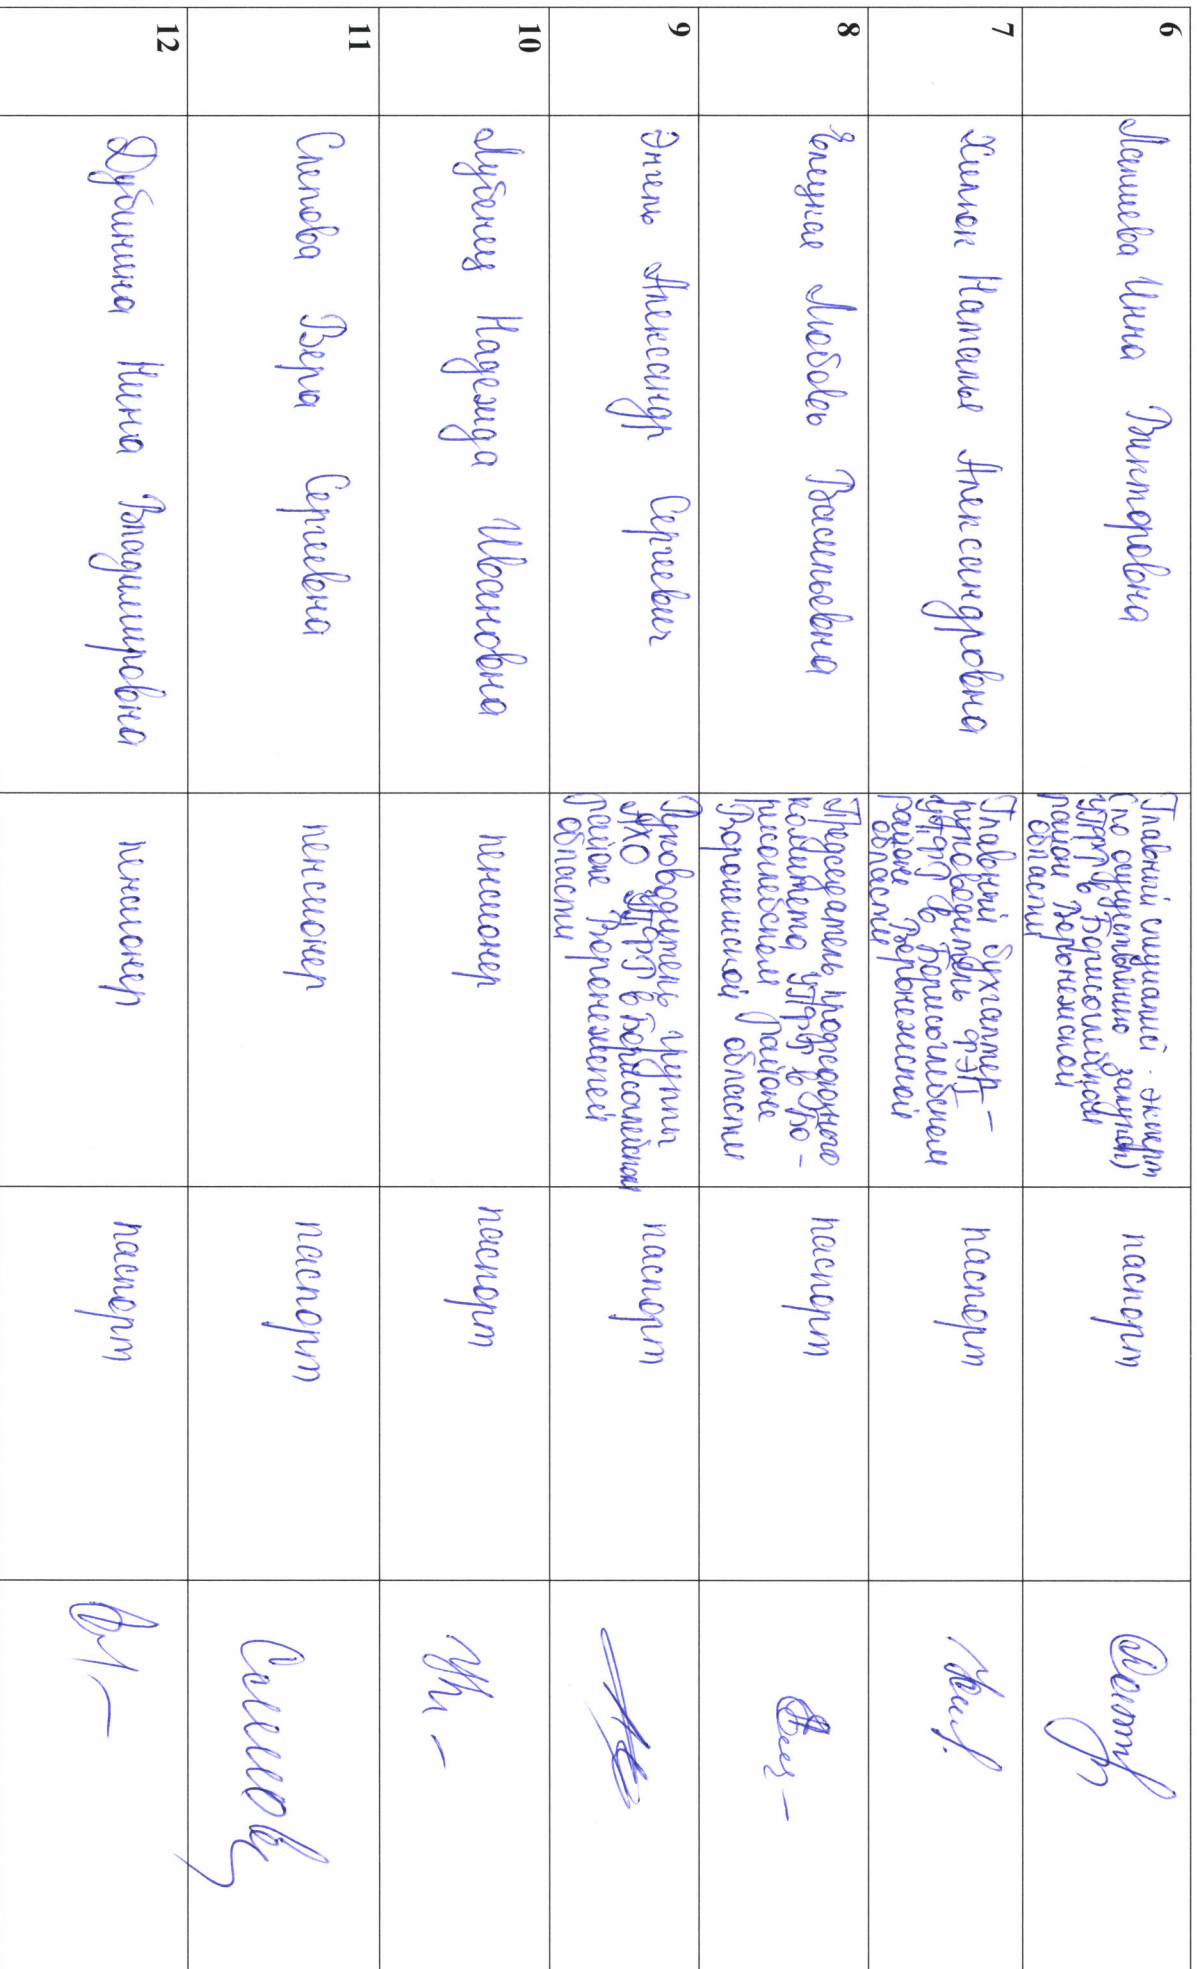 6
Лапшева Инна Викторовна
Главный специалист-эксперт
(по осуществлению закупок)
УПФР в Борисоглебском
районе Воронежской
области
паспорт
7
Наталья Александровна
Главный бухгалтер-
руководитель ФЭГ
УПФР в Борисоглебском
районе Воронежской
области
паспорт
8
Елецкая Любовь Васильевна
Председатель профсоюзного
комитета УПФР в Бо-
рисоглебском районе
Воронежской области
паспорт
9
Энгель Александр Сергеевич
Руководитель группы
АХО УПФР в Борисоглебском
районе Воронежской
области
паспорт
10
Лубенец Надежда Ивановна
пенсионер
паспорт
11
Слепова Вера Сергеевна
пенсионер
паспорт
12
Дубинина Нина Владимировна
пенсионер
паспорт